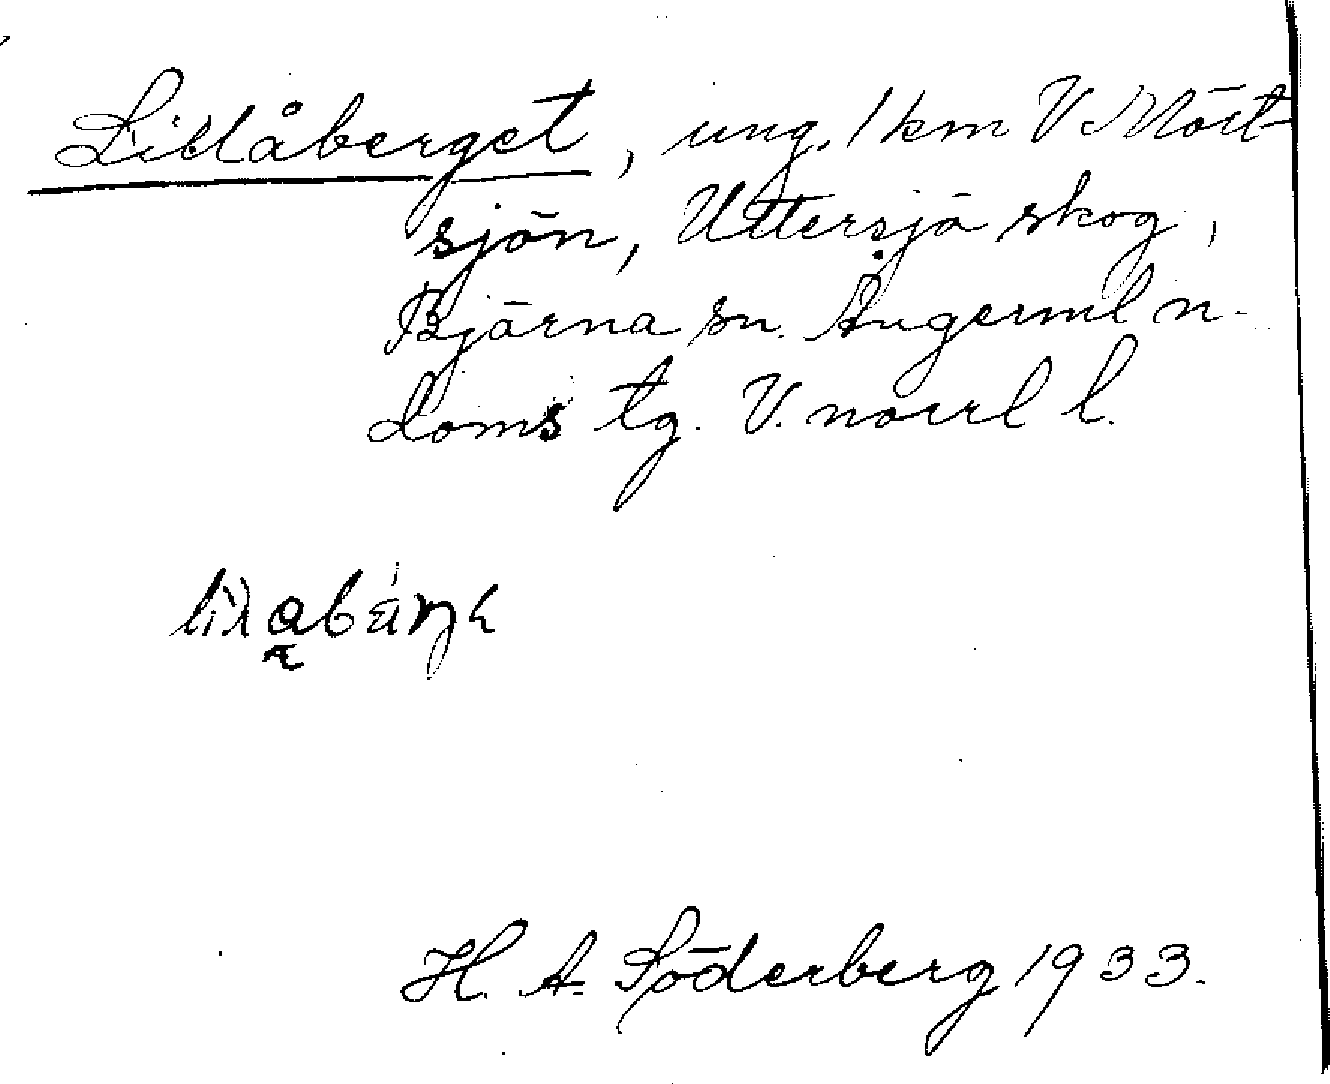 Lillåberget, ung. 1 km V Mört-
sjön, Uttersjö skog,
Björna sn. Ångerml n.
doms tg. V. norrl l.
H. A. Söderberg 1933.